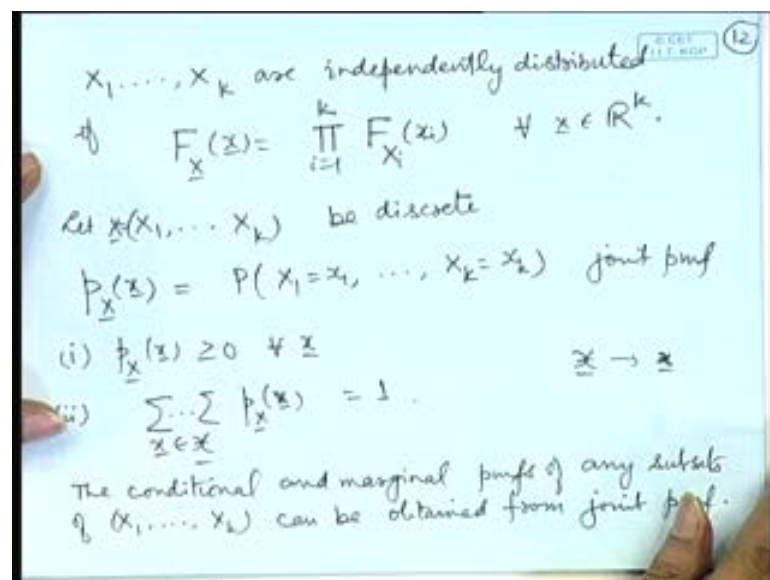 C CET
I.I.T. KGP
12
X₁, ...., X_k are independently distributed
if F_X̲(x̲) = ∏_{i=1}^{k} F_{X_i}(x_i) ∀ x̲ ∈ ℝ^k.
Let X̲(X₁, ... X_k) be discrete
p_X̲(x̲) = P(X₁=x₁, ..., X_k=x_k) joint pmf
(i) p_X̲(x̲) ≥ 0 ∀ x̲
𝒳̲ → x̲
(ii) Σ...Σ_{x̲ ∈ 𝒳̲} p_X̲(x̲) = 1.
The conditional and marginal pmfs of any subsets
of (X₁, ...., X_k) can be obtained from joint pmf.